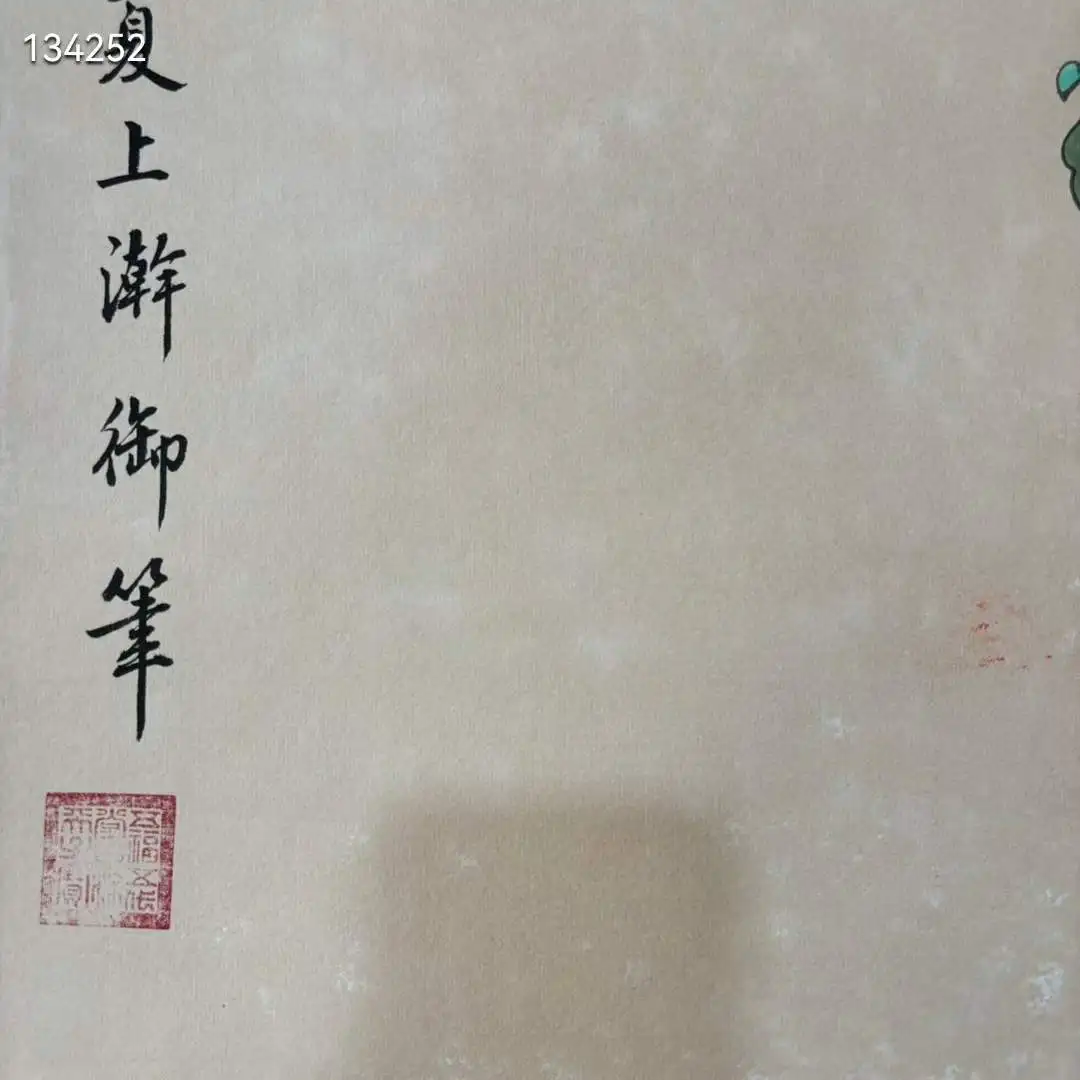 134252
夏上澣御筆